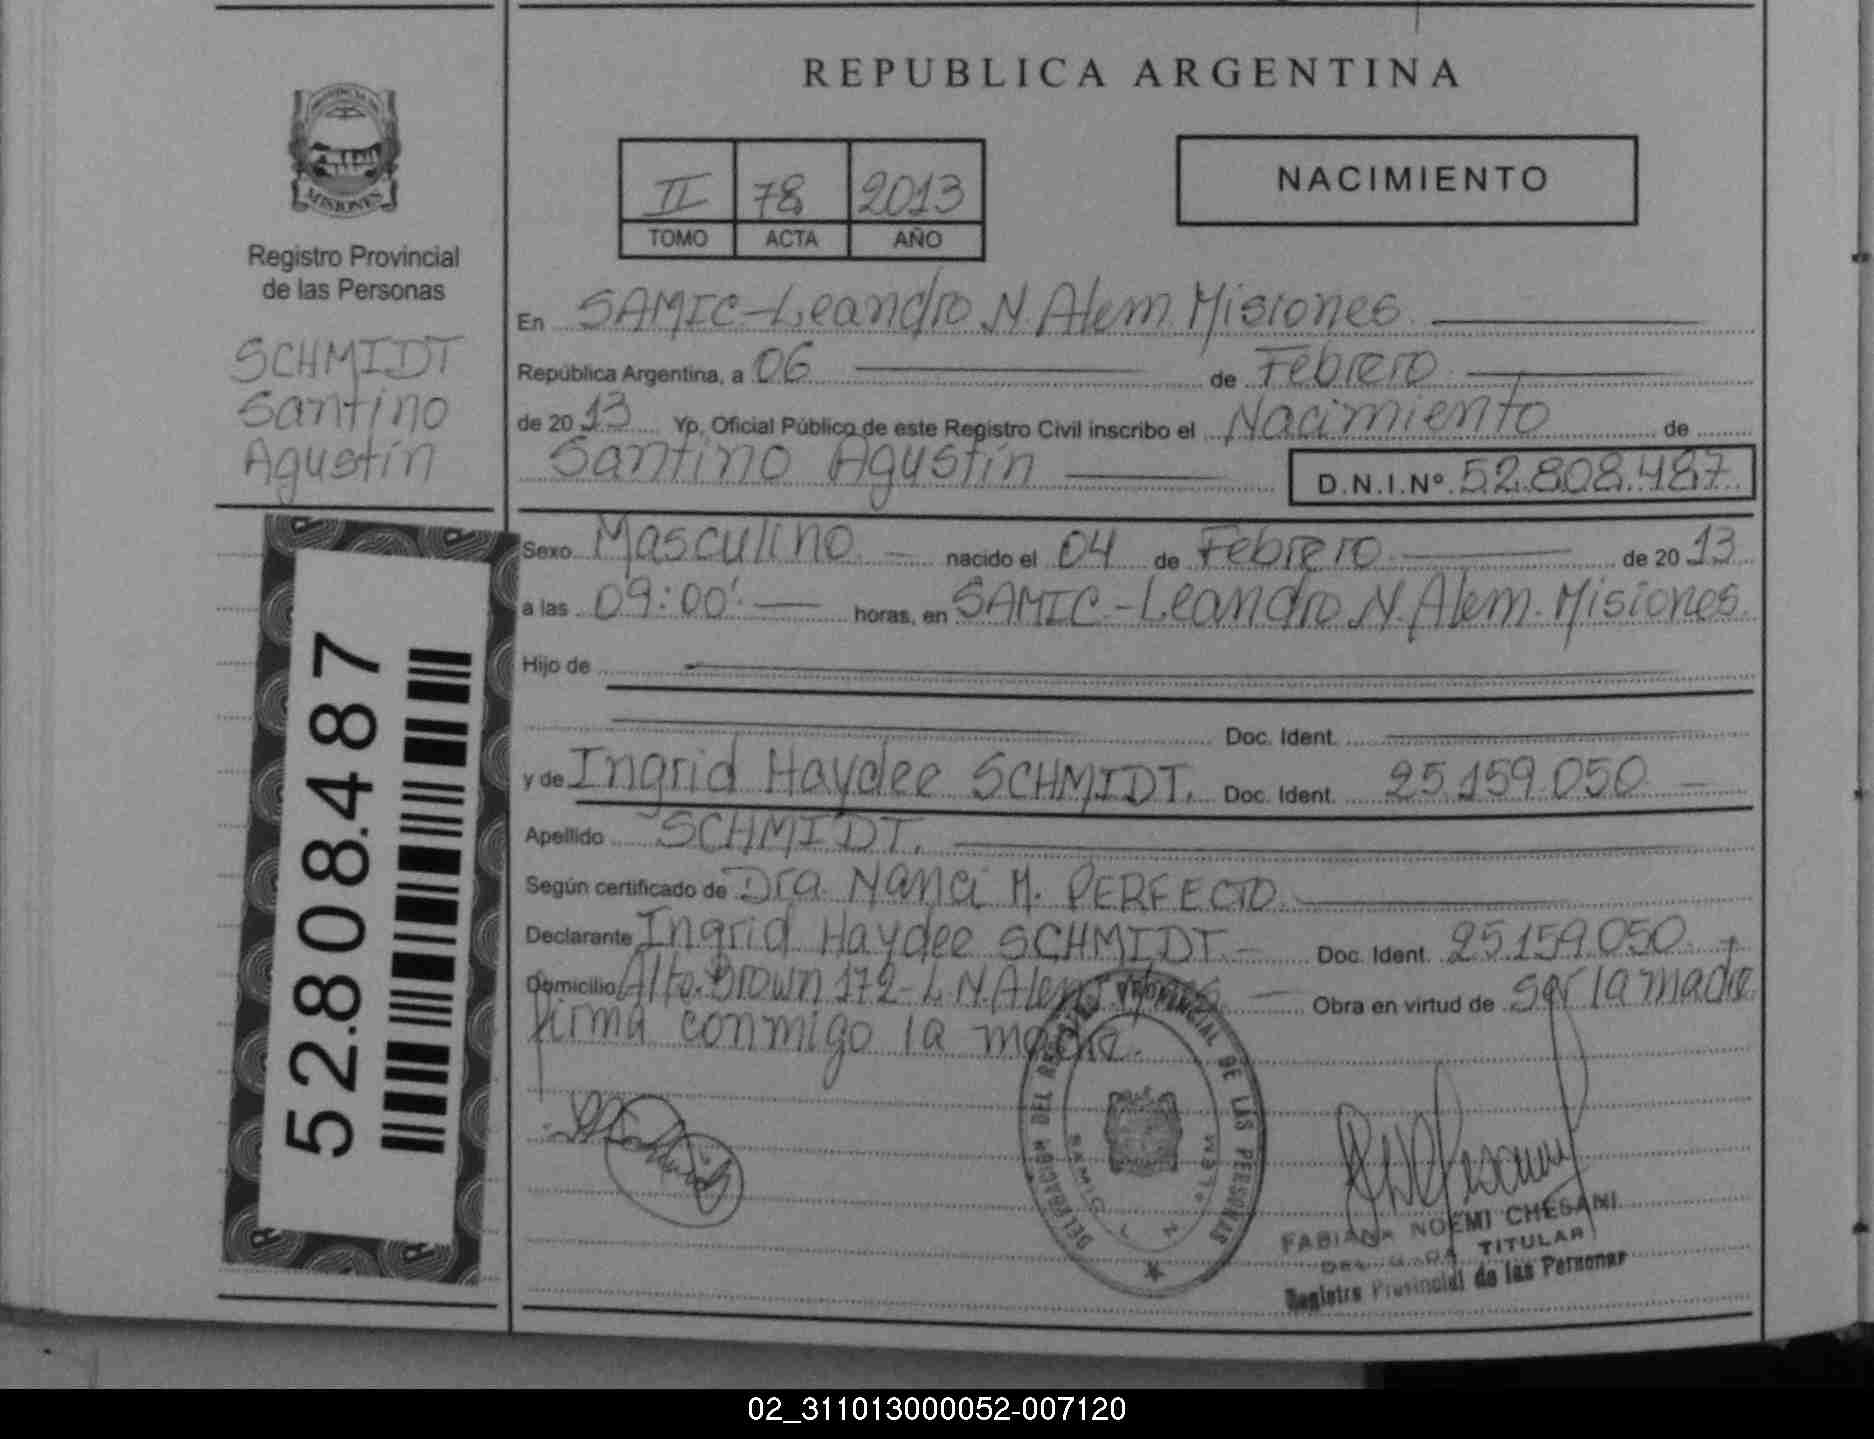 REPUBLICA ARGENTINA
MISIONES
Registro Provincial
de las Personas
SCHMIDT
Santino
Agustín
52.808.487
II 78 2013
TOMO ACTA AÑO
NACIMIENTO
En SAMIC-Leandro N. Alem. Misiones
República Argentina, a 06 de Febrero
de 20 13 Yo, Oficial Público de este Registro Civil inscribo el Nacimiento de
Santino Agustín D.N.I.Nº 52.808.487
Sexo Masculino nacido el 04 de Febrero de 20 13
a las 09:00' horas, en SAMIC-Leandro N. Alem. Misiones.
Hijo de
Doc. Ident.
y de Ingrid Haydee SCHMIDT. Doc. Ident. 25.159.050
Apellido SCHMIDT.
Según certificado de Dra. Nanci M. PERFECTO
Declarante Ingrid Haydee SCHMIDT. Doc. Ident. 25.159.050
Domicilio Alte. Brown 172-L.N. Alem Obra en virtud de ser la madre
firma conmigo la madre.
DELEGACION DEL REGISTRO PROVINCIAL DE LAS PERSONAS
SAMIC L N ALEM
FABIANA NOEMI CHESANI
DELEGADA TITULAR
Registro Provincial de las Personas
02_311013000052-007120